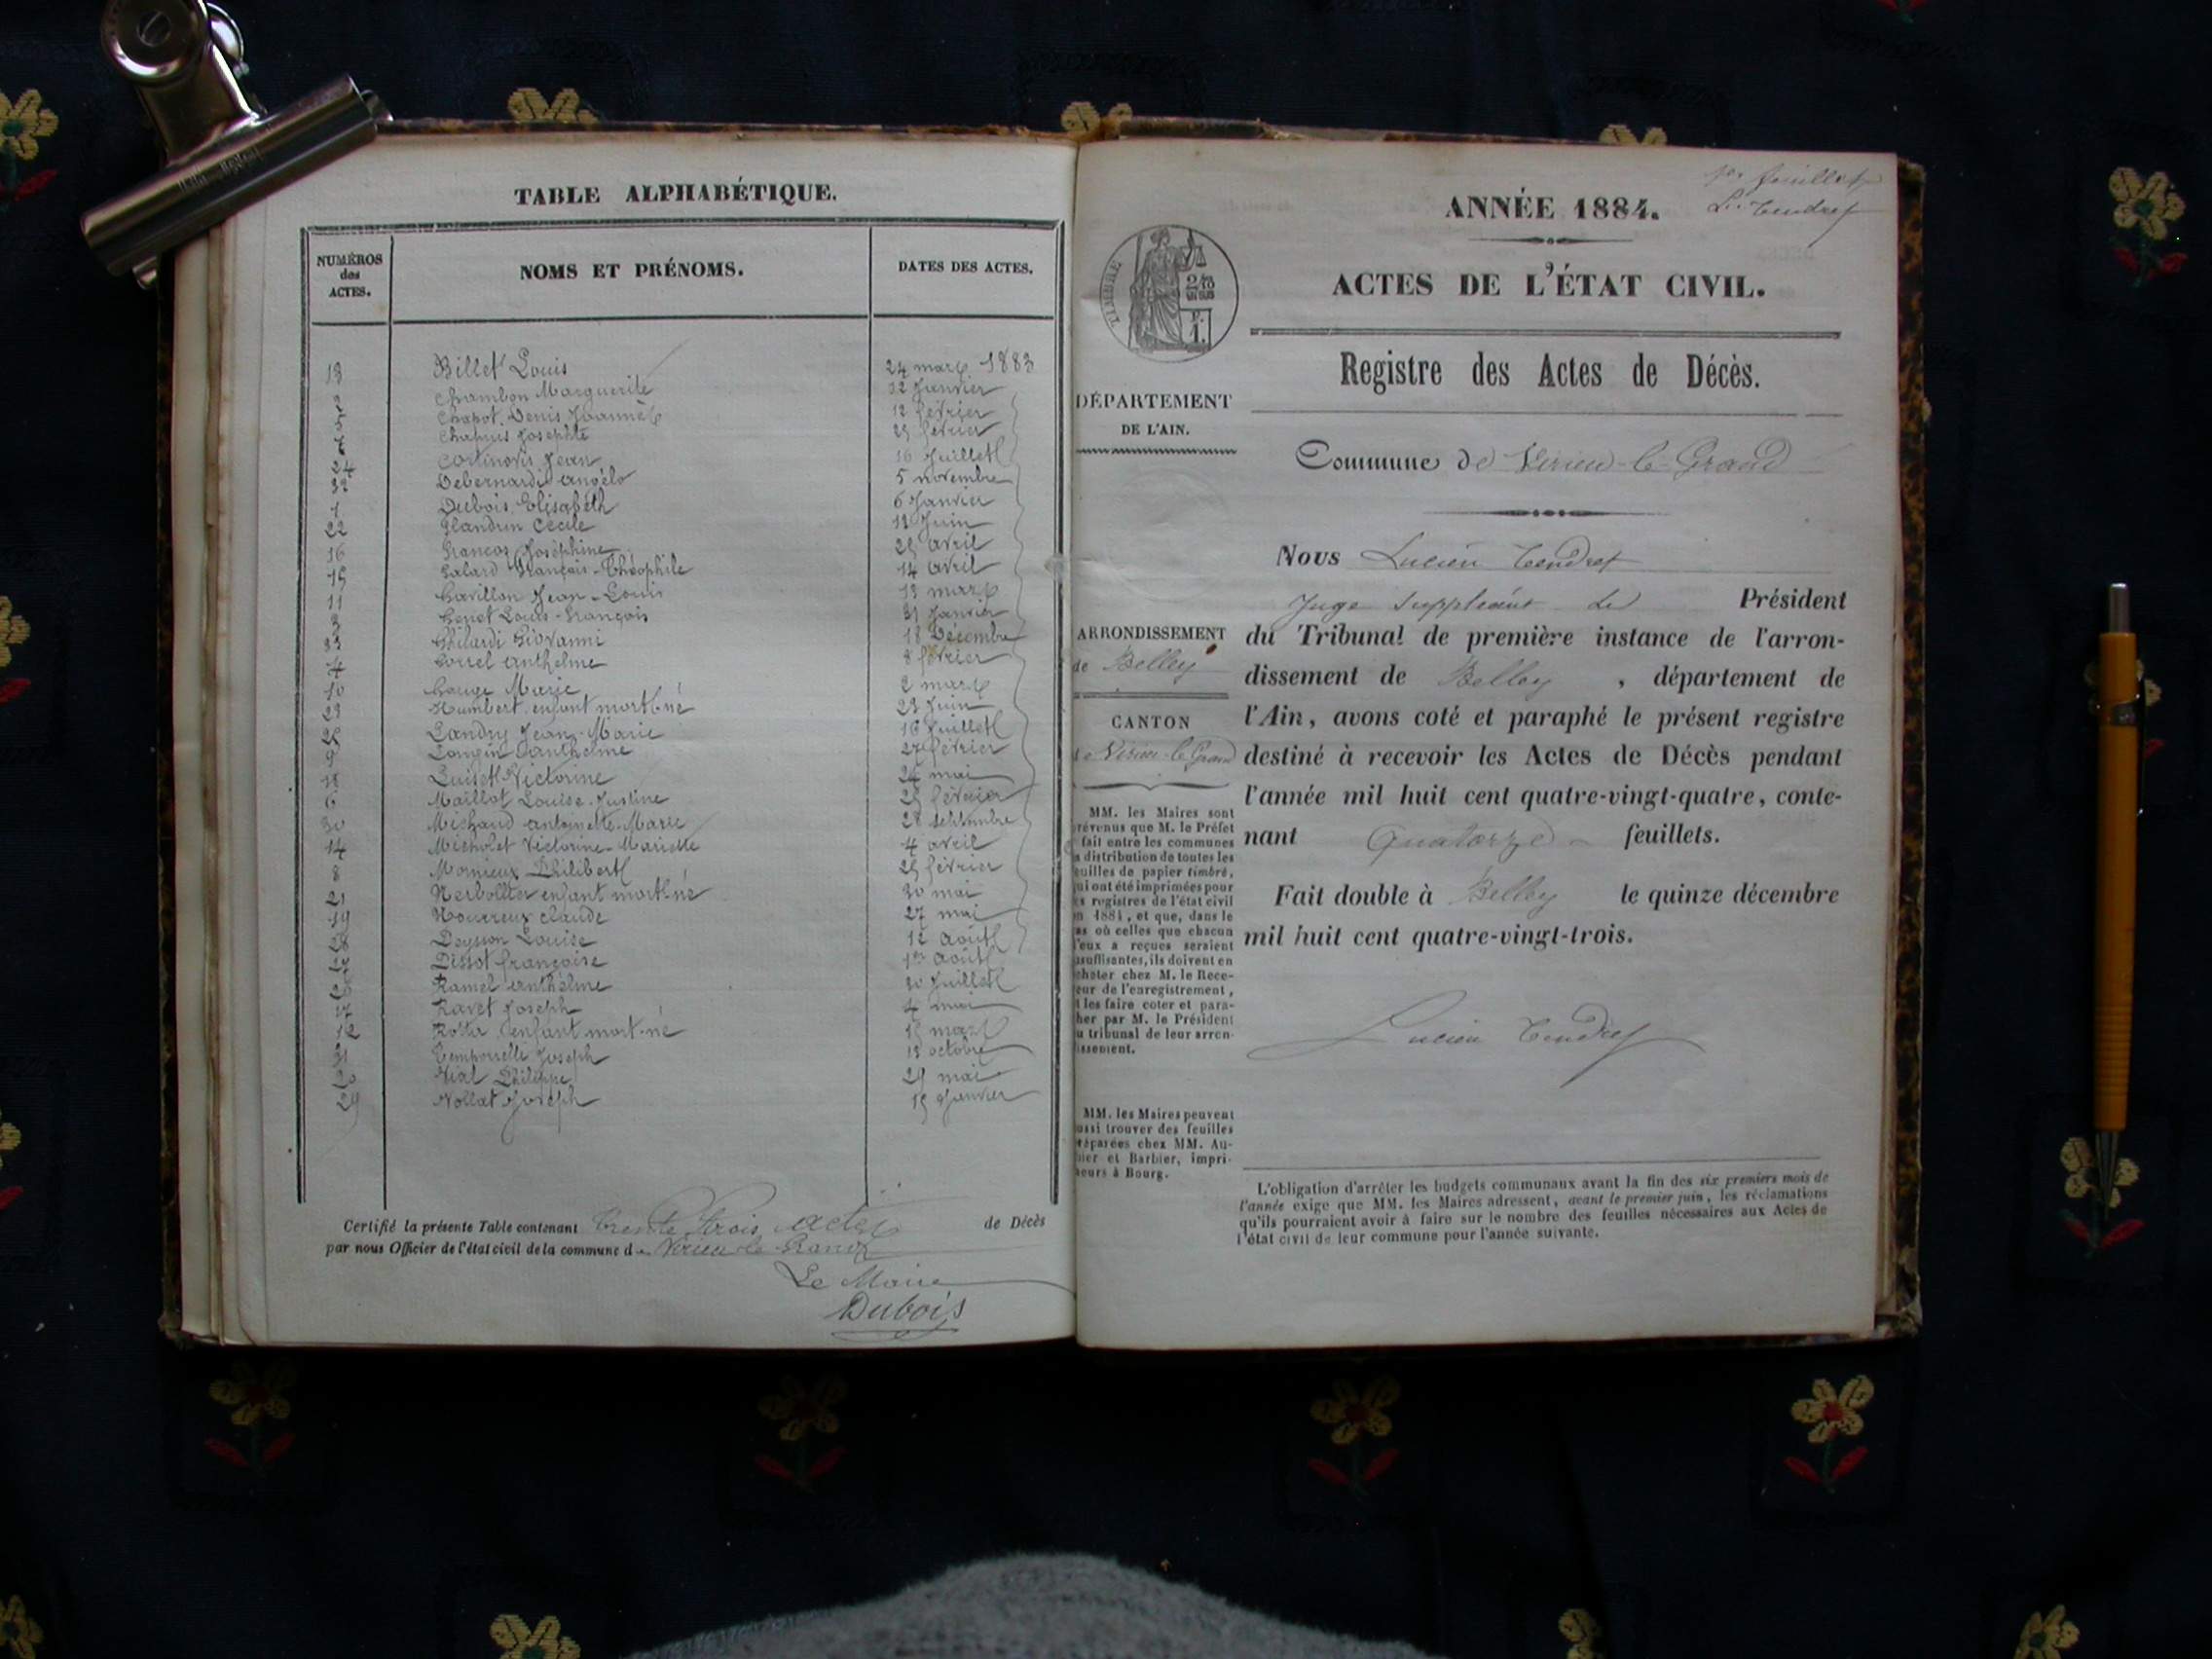 TABLE ALPHABÉTIQUE.
NUMÉROS
des
ACTES.
NOMS ET PRÉNOMS.
DATES DES ACTES.
13 Billet Louis 24 mars 1883
Chambon Marguerite 12 Janvier
Chapot Denis 12 février
Chapuis Josephte 25 février
Cortinovis Jean 16 Juillet
32 Debernardi angélo 5 novembre
1 Dubois Elisabeth 6 Janvier
22 Flandrin Cécile 12 Juin
16 Francoz Joséphine 25 avril
15 Galard François-Théophile 14 avril
11 Gavillon Jean-Louis 13 mars
3 Genet Louis-François 31 Janvier
33 Ghilardi Giovanni 18 Décembre
4 Gorrel anthelme 8 février
10 Gouge Marie 2 mars
23 Humbert enfant mort-né 23 Juin
Landry Jean-Marie 16 Juillet
9 Longin anthelme 27 février
18 Luiset Victorine 24 mai
6 Maillot Louise-Justine 25 février
30 Michaud antoinette-Marie 28 septembre
14 Micholet Victorine-Mariette 4 avril
8 Mornieux Philibert 25 février
21 Nerbollier enfant mort-né 30 mai
19 claude 27 mai
Peysson Louise 12 août
Pissot françoise 1er août
Ramel anthelme 30 Juillet
Ravet Joseph 4 mai
enfant mort-né 15 mars
Temporelli Joseph 13 octobre
Vial Philippe 29 mai
Vollat Joseph 15 Janvier
Certifié la présente Table contenant trente trois actes de Décès
par nous Officier de l'état civil de la commune de Virieu-le-Grand
Le Maire
Dubois
1er feuillet
Ln Tendret
ANNÉE 1884.
ACTES DE L'ÉTAT CIVIL.
TIMBRE
Registre des Actes de Décès.
DÉPARTEMENT
DE L'AIN.
Commune de Virieu-le-Grand
Nous Lucien Tendret
Juge suppléant Président
ARRONDISSEMENT
de Belley
CANTON
de Virieu-le-Grand
du Tribunal de première instance de l'arron-
dissement de Belley, département de
l'Ain, avons coté et paraphé le présent registre
destiné à recevoir les Actes de Décès pendant
l'année mil huit cent quatre-vingt-quatre, conte-
nant Quatorze feuillets.
Fait double à Belley le quinze décembre
mil huit cent quatre-vingt-trois.
Lucien Tendret
MM. les Maires sont
révenus que M. le Préfet
fait entre les communes
a distribution de toutes les
euilles de papier timbré,
ui ont été imprimées pour
es registres de l'état civil
n 1884, et que, dans le
as où celles que chacun
'eux a reçues seraient
nsuffisantes, ils doivent en
cheter chez M. le Rece-
eur de l'enregistrement,
t les faire coter et para-
her par M. le Président
u tribunal de leur arron-
issement.
MM. les Maires peuvent
ussi trouver des feuilles
réparées chez MM. Au-
hier et Barbier, impri-
eurs à Bourg.
L'obligation d'arrêter les budgets communaux avant la fin des six premiers mois de
l'année exige que MM. les Maires adressent, avant le premier juin, les réclamations
qu'ils pourraient avoir à faire sur le nombre des feuilles nécessaires aux Actes de
l'état civil de leur commune pour l'année suivante.